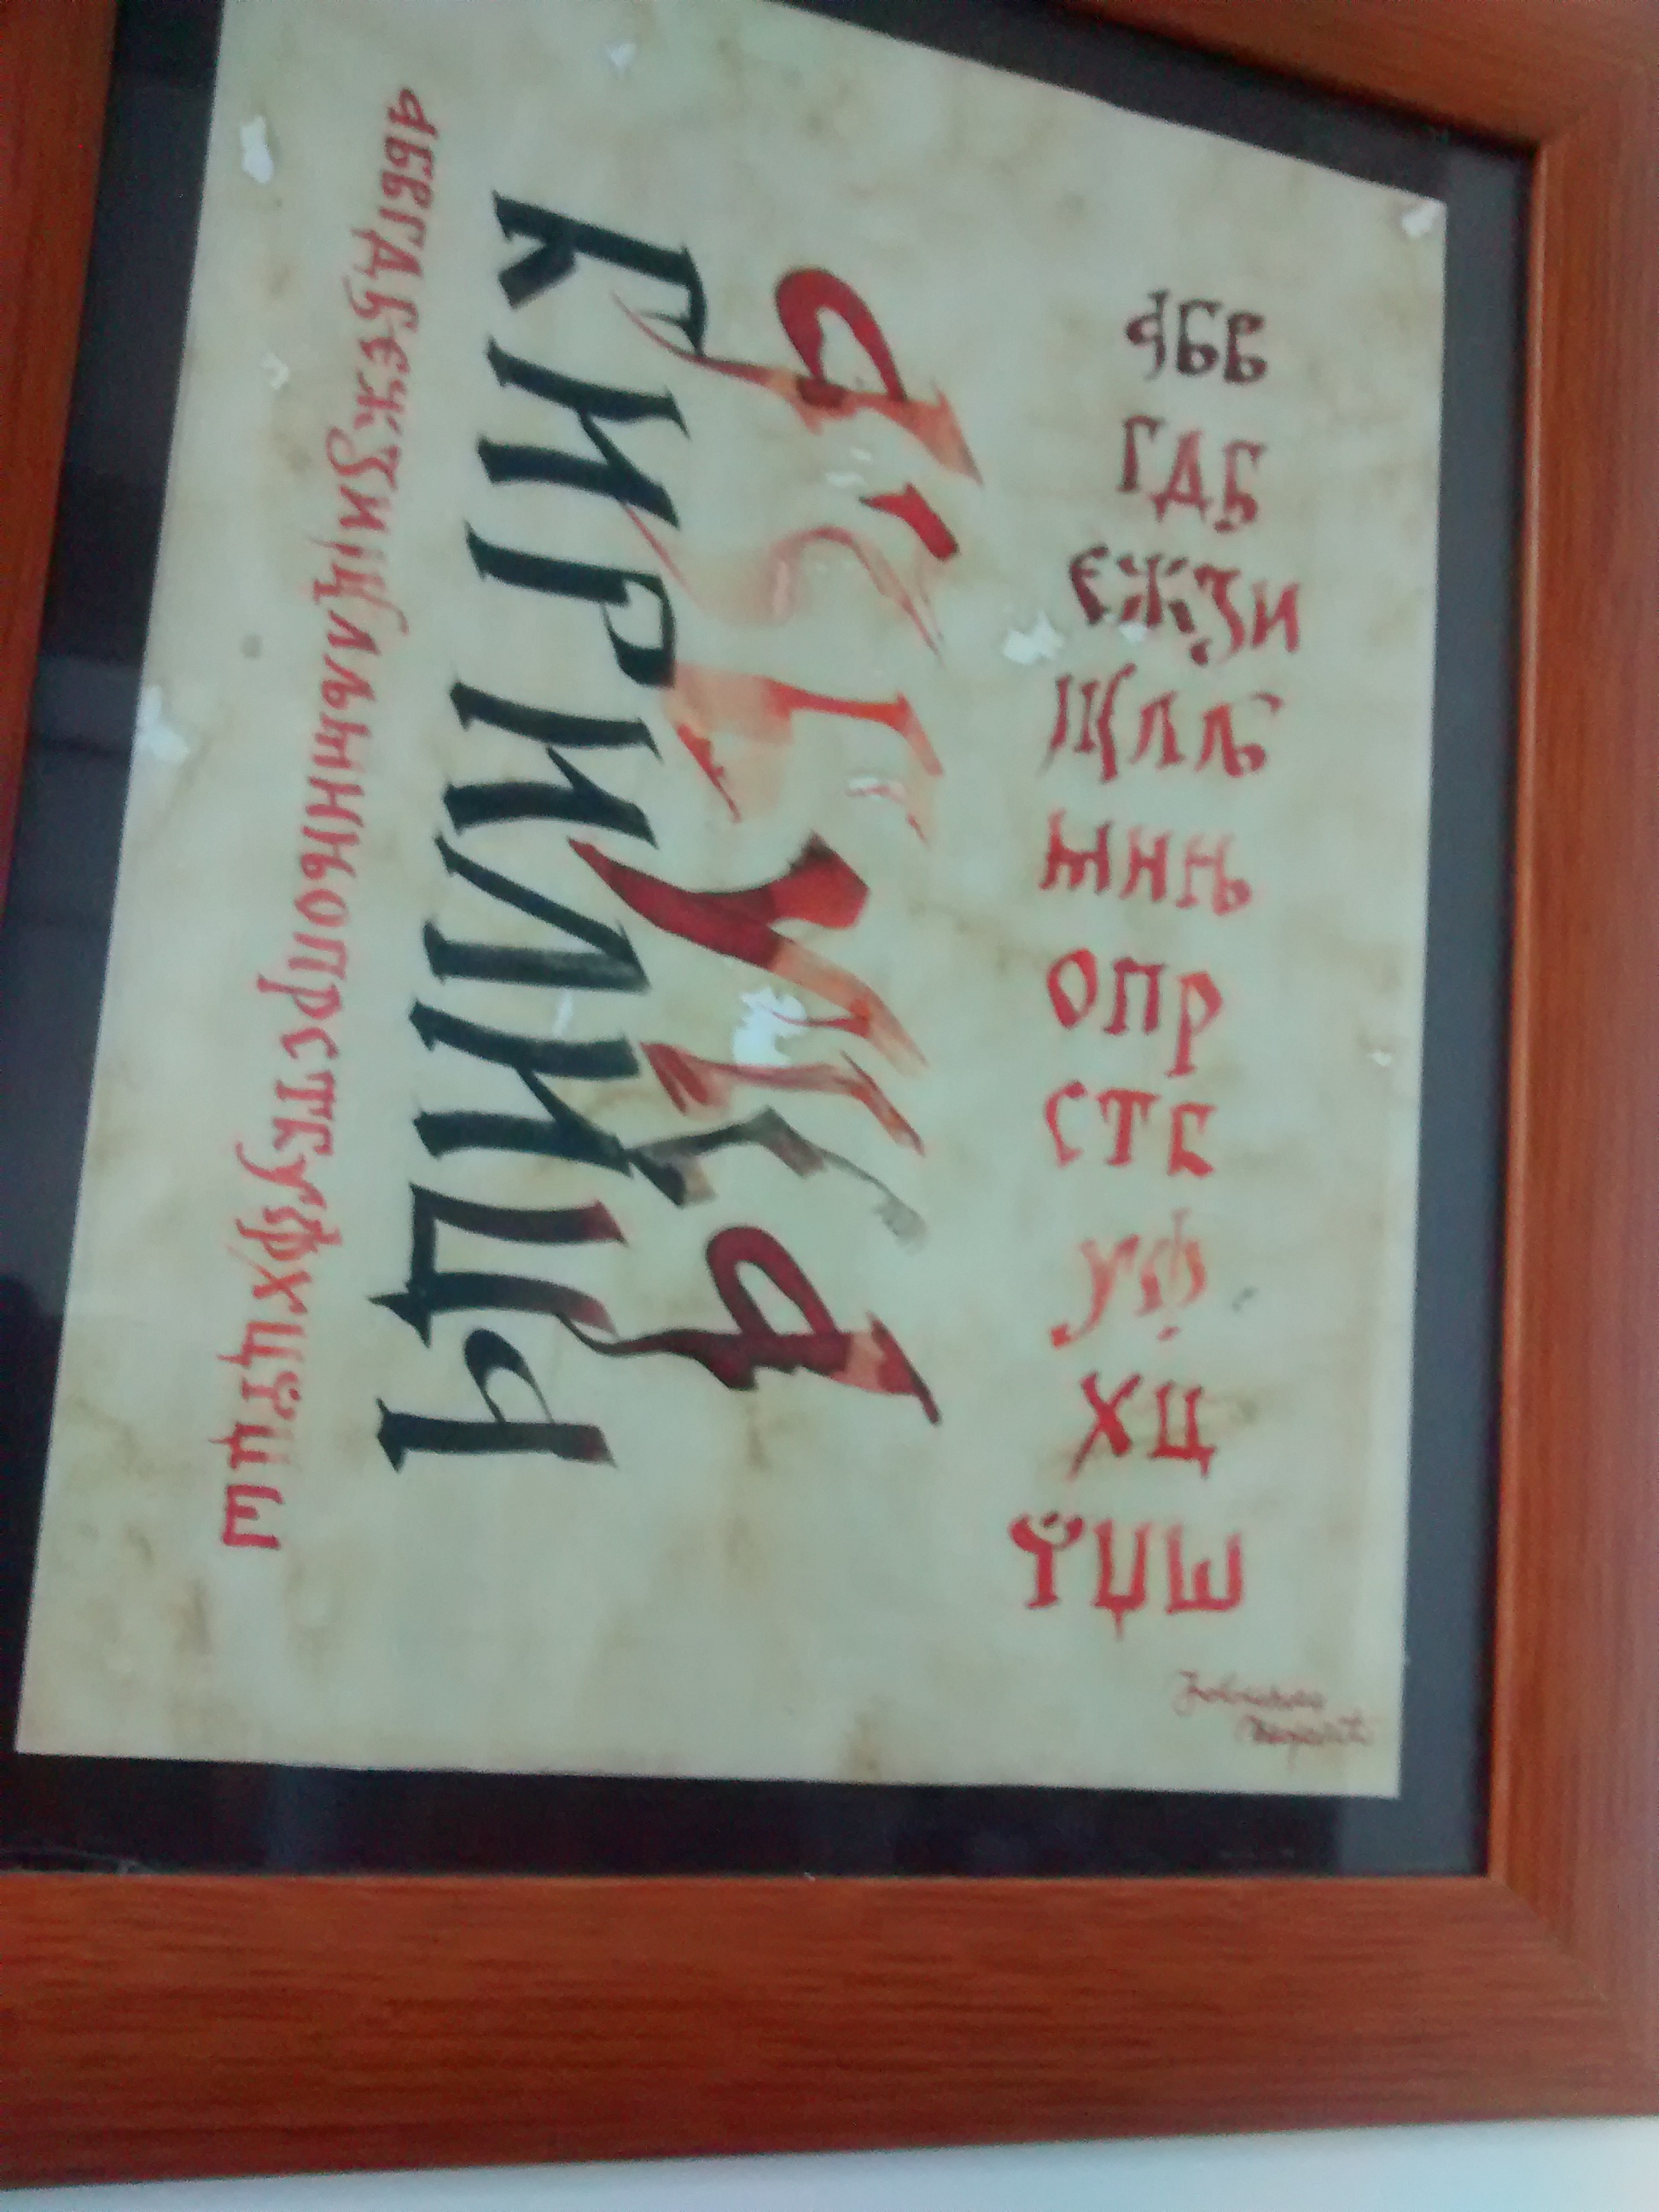 АБВ
ГДЂ
ЕЖЗИ
ЈКЛЉ
МНЊ
ОПР
СТЋ
УФ
ХЦ
ЧЏШ
АЗБУКА
КИРИЛИЦА
АБВГДЂЕЖЗИЈКЛЉМНЊОПРСТЋУФХЦЧЏШ